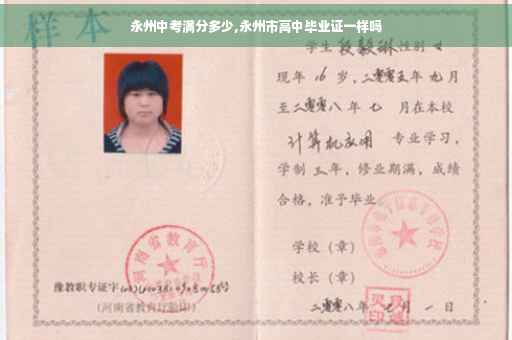 永州中考满分多少,永州市高中毕业证一样吗
样本
学生段毅琳性别女
现年16岁,二零零五年九月
至二零零八年七月在本校
计算机应用 专业学习,
学制三年,修业期满,成绩
合格,准予毕业
学校(章)
校长(章)
二零零八年七月一日
河南省教育厅
豫教职专证字
(河南省教育厅验印)